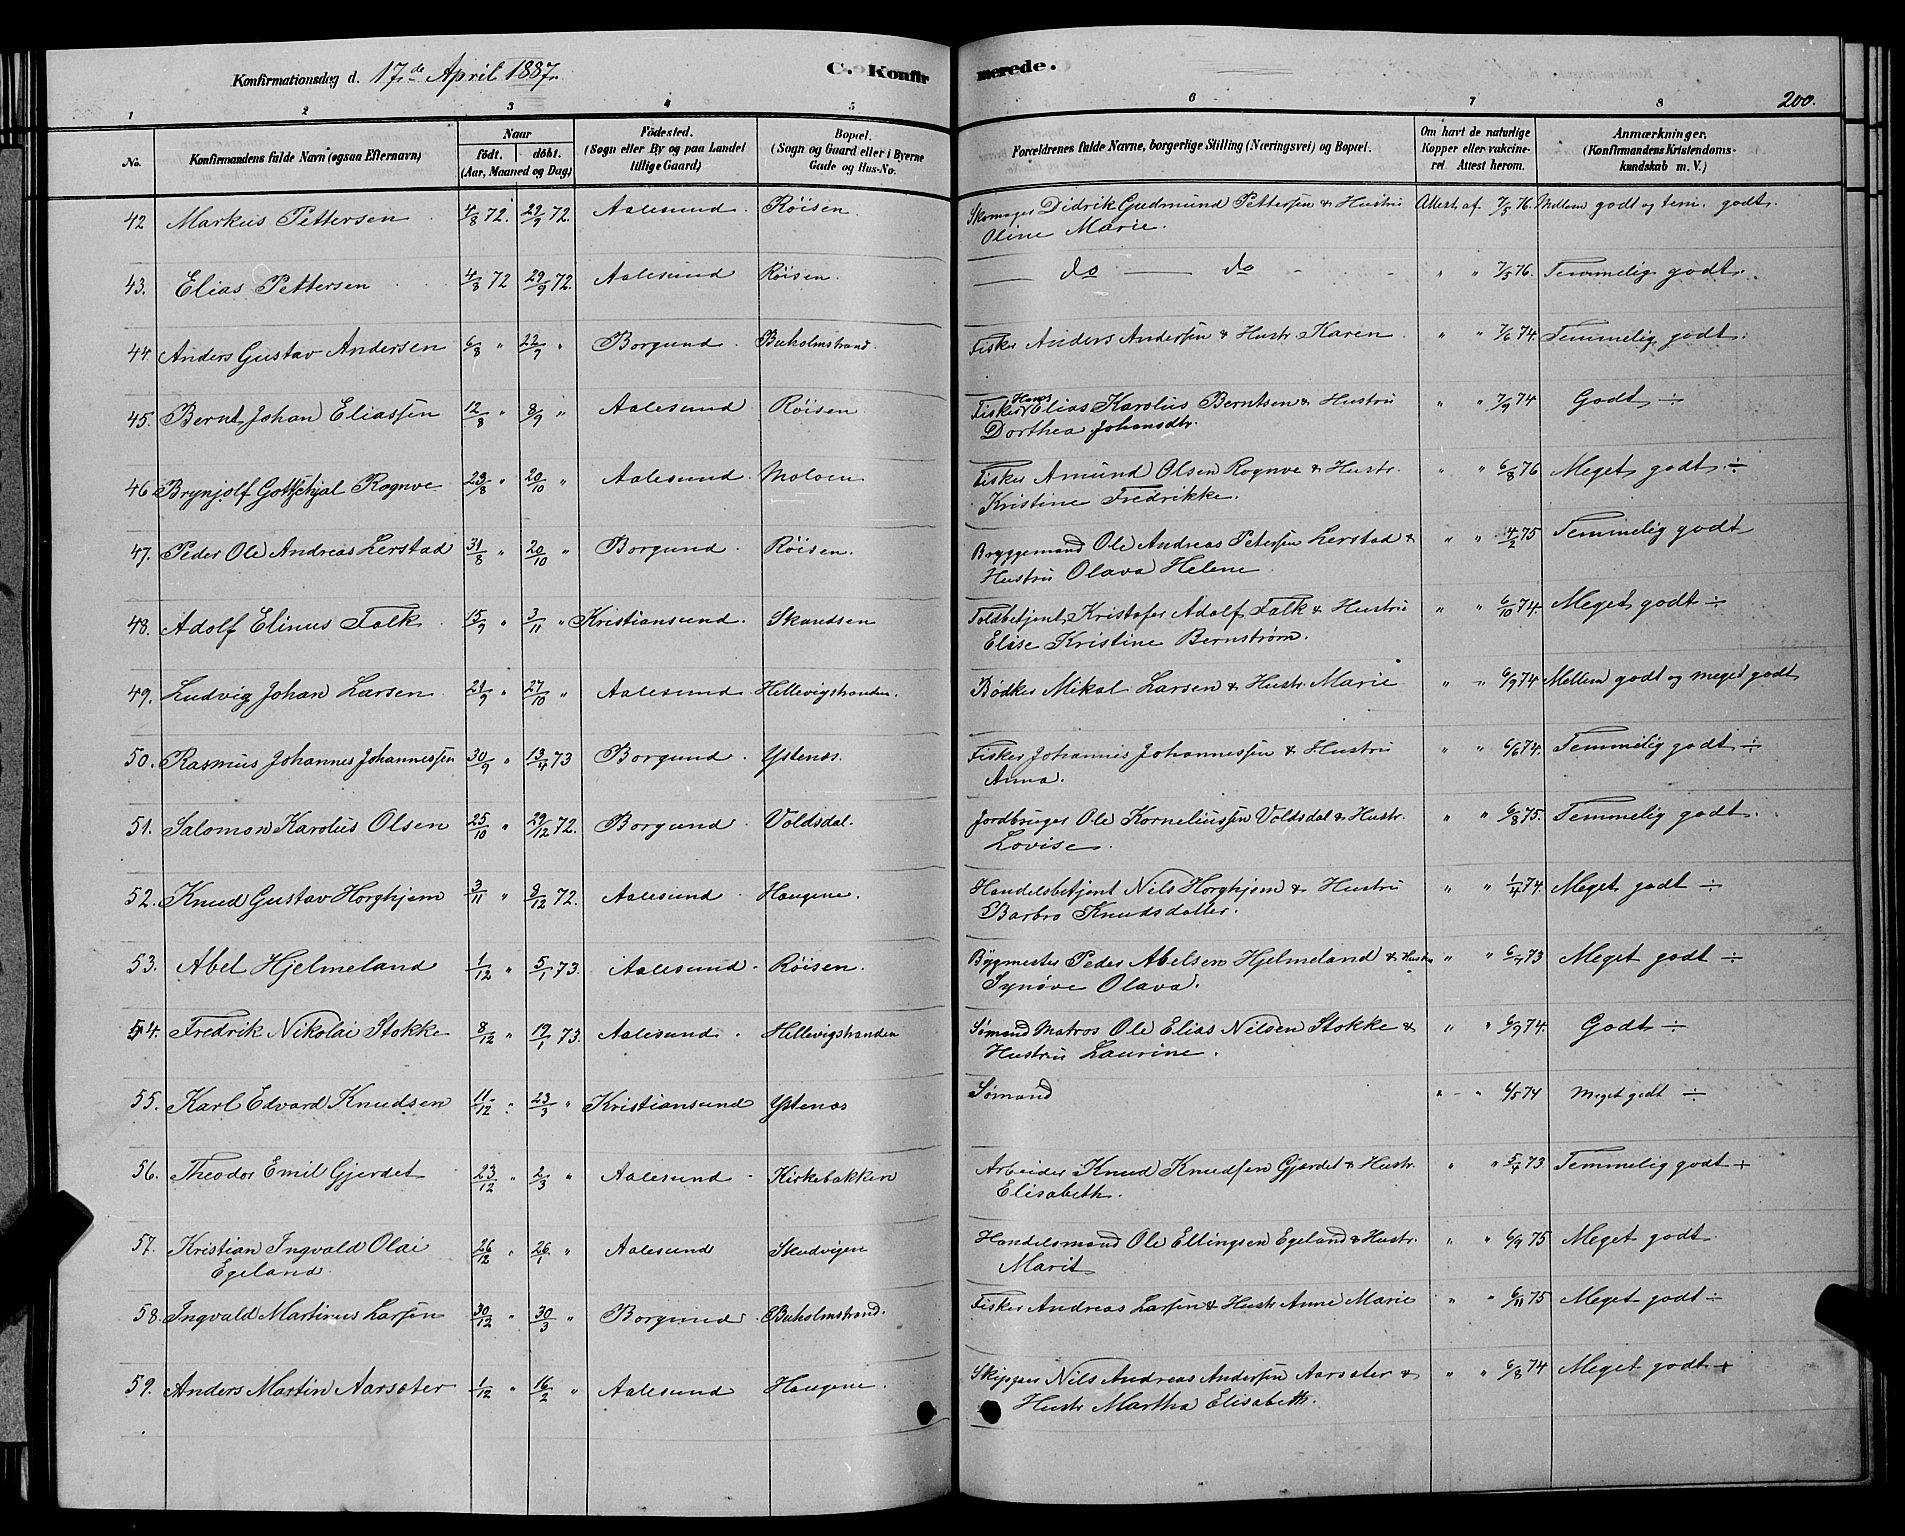 Konfirmationsdag d. 17de April 1887. C. Konfirmerede. 200.
1 2 3 4 5 6 7 8
No. Konfirmandens fulde Navn (ogsaa Efternavn) Naar født. døbt. (Aar, Maaned og Dag) Fødested. (Sogn eller By og paa Landet tillige Gaard) Bopæl. (Sogn og Gaard eller i Byerne Gade og Hus-No. Forældrenes fulde Navne, borgerlige Stilling (Næringsvei) og Bopæl. Om havt de naturlige Kopper eller vakcineret Attest herom. Anmærkninger. (Konfirmandens Kristendomskundskab m. V.)
42 Markus Pettersen 4/8 72. 29/9 72. Aalesund. Röisen. Skomager Didrik Gudmund Pettersen & Hustru Attest af 7/5 76. Mellem godt og tem. godt.
Oline Marie.
43. Elias Pettersen 4/8 72 29/9 72. Aalesund Röisen. do — do " " 7/5 76. Temmelig godt.
44 Anders Gustav Andersen 6/8 " 22/9 " Borgund. Buholmstrand. Fisker Anders Andersen & Hustr. Karen " " 7/6 74. Temmelig godt.
45. Bernt Johan Eliassen 12/8 " 8/9 " Aalesund Röisen Fisker Hans Elias Karolus Berntsen & Hustru " " 7/9 74 Godt ÷
Dorthea Johansdtr.
46 Brynjolf Gottskjal Rognve 23/8 " 20/10 " Aalesund. Moloen Fisker Amund Olsen Rognve & Hustr. " " 6/8 76 Meget godt ÷
Kristine Fredrikke.
47. Peder Ole Andreas Lerstad 31/8 " 20/10 " Borgund. Röisen. Bryggemand Ole Andreas Petersen Lerstad & " " 4/2 75 Temmelig godt
Hustru Olava Helene
48. Adolf Elinus Falk 15/9 " 3/11 " Kristiansund. Skandsen Toldbetjent Kristofer Adolf Falk & Hustru " " 6/10 74. Meget godt ÷
Elise Kristine Bernstrøm.
49. Ludvig Johan Larsen 21/9 " 27/10 " Aalesund Hellevigstranden. Bødker Mikal Larsen & Hustr. Marie " " 6/9 74 Mellem godt og meget godt
50. Rasmus Johannes Johannessen 30/9 " 13/4 73 Borgund. Ystenes. Fisker Johannes Johannessen & Hustru " " 6/6 74. Temmelig godt ÷
Anna.
51. Salomon Karolus Olsen 25/10 " 29/12 72. Borgund. Voldsdal. Jordbruger Ole Korneliussen Voldsdal & Hustr. " " 6/8 75. Temmelig godt.
Lovise.
52. Knud Gustav Horghjem 3/11 " 8/12 72. Aalesund. Haugene. Handelsbetjent Nils Horghjem & Hustru " " 1/4 74. Meget godt ÷
Barbro Knudsdatter.
53. Abel Hjelmeland 1/12 " 5/1 73. Aalesund. Röisen. Bygmester Peder Abelsen Hjelmeland & Hustru " " 6/7 73 Meget godt ÷
Synøve Olava.
54. Fredrik Nikolai Stokke 8/12 " 19/1 73. Aalesund. Hellevigstranden Sømand Matros Ole Elias Nilsen Stokke & " " 6/9 74. Godt ÷
Hustru Laurine.
55. Karl Edvard Knudsen 11/12 " 23/3 " Kristiansund Ystenes Sømand " " 6/5 74 Meget godt ÷
56. Theodor Emil Gjerdet 23/12 " 2/3 " Aalesund. Kirkebakken Arbeider Knud Knudsen Gjerdet & Hustr. " " 5/4 73 Temmelig godt +
Elisabeth.
57. Kristian Ingvald Olai 26/12 " 26/1 " Aalesund Skudvigen Handelsmand Ole Ellingsen Egeland & Hustr. " " 6/9 75 Meget godt
Egeland. Marit
58. Ingvald Martinus Larsen 30/12 " 30/3 " Borgund. Buholmstrand. Fisker Andreas Larsen & Hustr Anne Marie " " 6/11 75 Meget godt ÷
59. Anders Martin Aarsæter 1/12 " 16/2 " Aalesund Haugene. Skipper Nils Andreas Andersen Aarsæter & " " 6/8 74 Meget godt +
Hustr Martha Elisabeth.